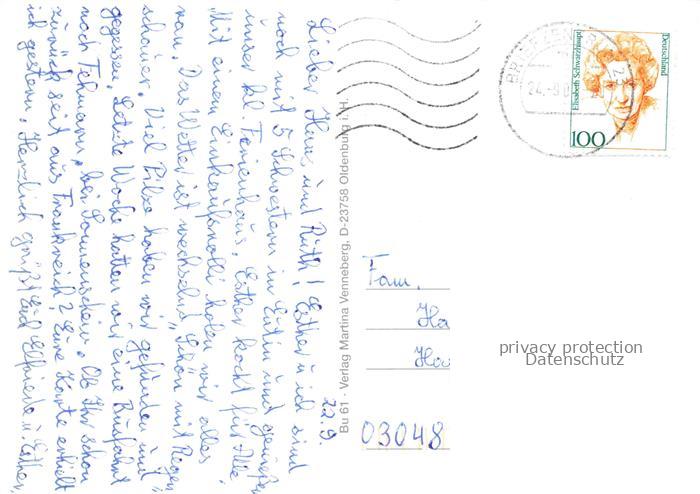 22.9.
Lieber Heinz und Ruth! Esther u. ich sind
noch mit 5 Schwestern in Eutin und genießen
unser kl. Ferienhaus. Esther kocht für Alle.
Mit einem Einkaufsroller holen wir alles
ran. Das Wetter ist wechselnd, schön mit Regen
schauer. Viel Pilze haben wir gefunden und
gegessen. Letzte Woche hatten wir eine Busfahrt
nach Fehmarn, bei Sonnenschein. Ob Ihr schon
zurück seit aus Frankreich? Eure Karte erhielt
ich gestern. Herzlich grüßt Euch Elfriede u. Esther
Bu 61 - Verlag Martina Venneberg, D-23758 Oldenburg i. H.
Deutschland
Elisabeth Schwarzhaupt
100
24.-9.
Fam.
Ha
03048
privacy protection
Datenschutz